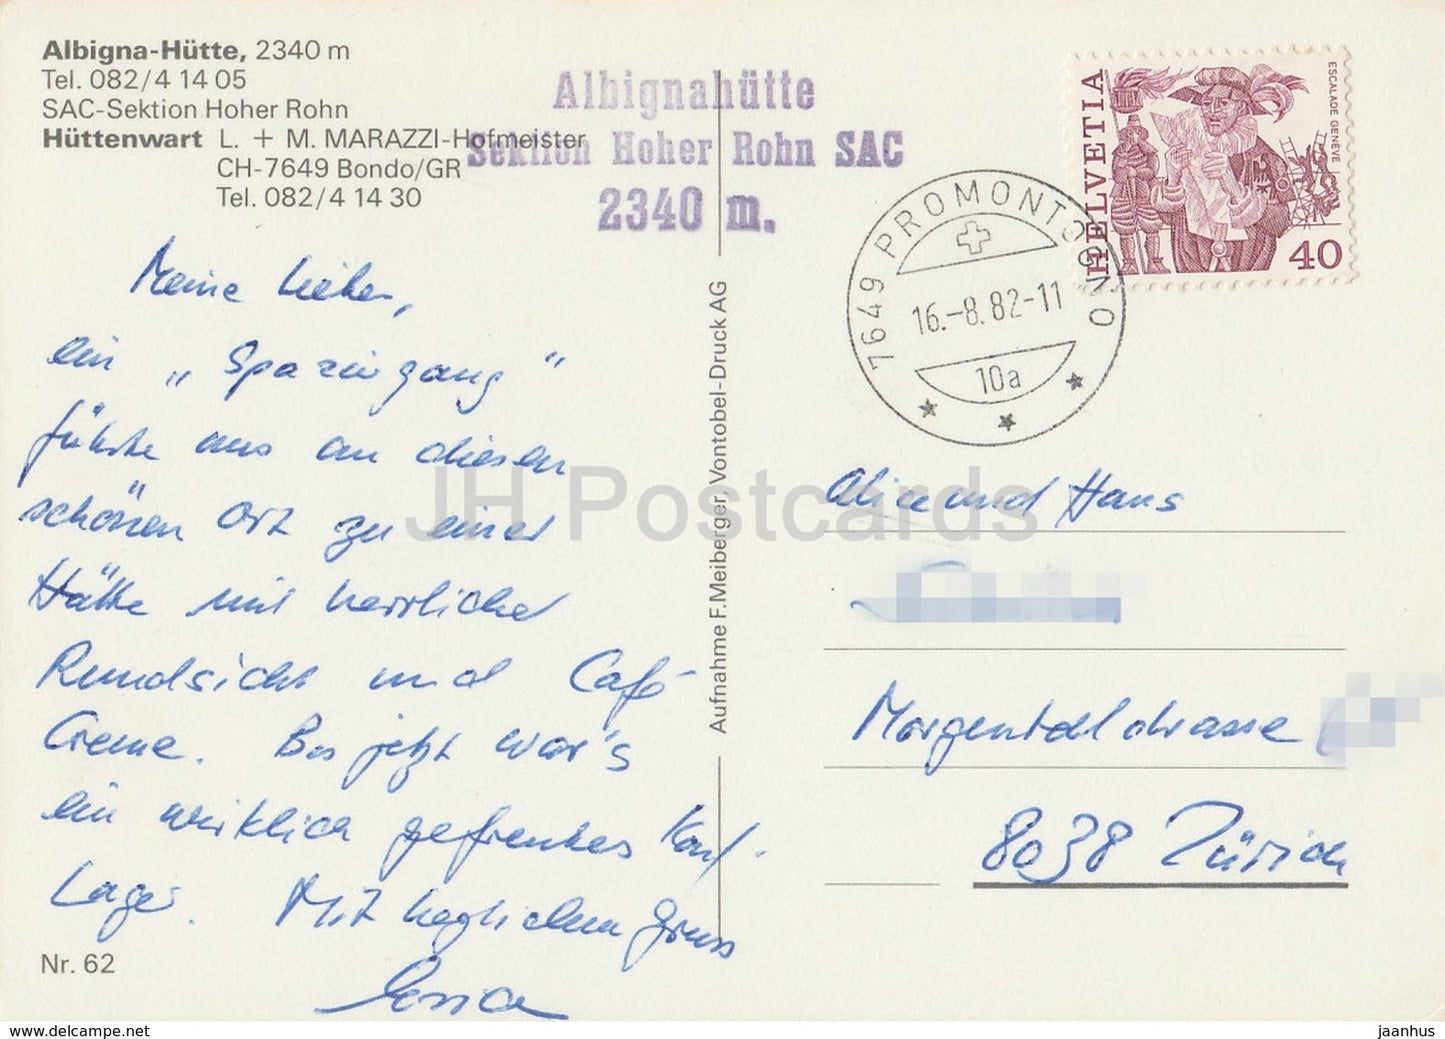 Albigna-Hütte, 2340 m
Tel. 082/4 14 05
SAC-Sektion Hoher Rohn
Hüttenwart L. + M. MARAZZI-Hofmeister
CH-7649 Bondo/GR
Tel. 082/4 14 30
Albignahütte
Sektion Hoher Rohn SAC
2340 m.
HELVETIA
ESCALADE GENÈVE
40
7649 PROMONTOGNO
16.-8.82-11
10a
Meine Lieben,
ein „Spaziergang"
führte uns an diesen
schönen Ort zu einer
Hütte mit herrlicher
Rundsicht und Café-
Creme. Bis jetzt war's
ein wirklich gefreutes
Lager. Mit herzlichem Gruss
Aufnahme F. Meiberger, Vontobel-Druck AG
Alice und Hans
Morgentalstrasse
8038 Zürich
Nr. 62
JH Postcards
delcampe.net
jaanhus